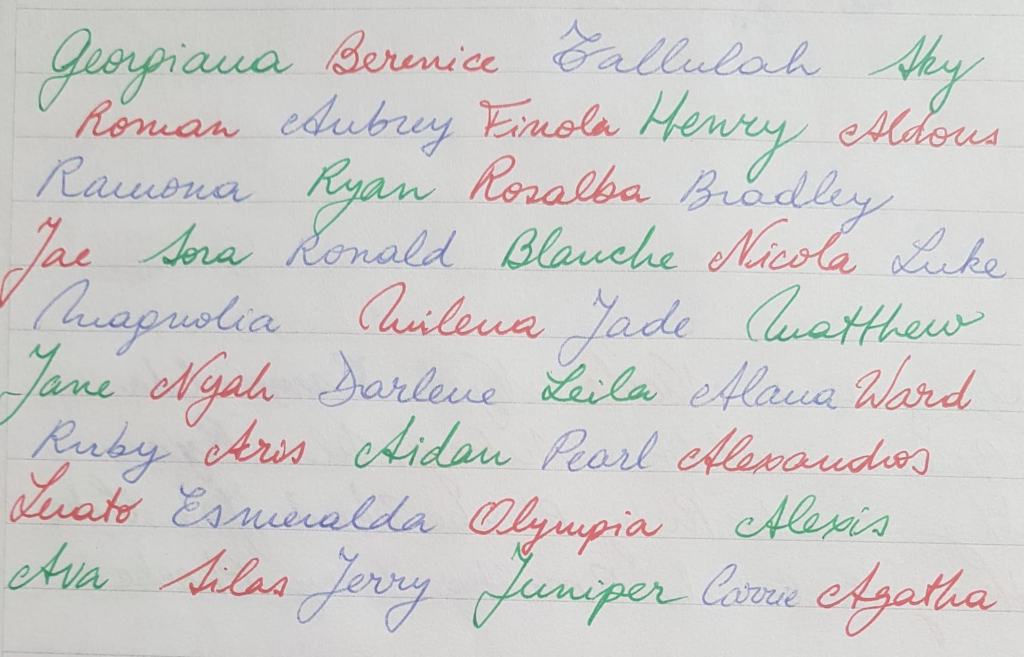 Georgiana Berenice Tallulah Sky
Roman Aubrey Finola Henry Aldous
Ramona Ryan Rosalba Bradley
Jae Sora Ronald Blanche Nicola Luke
Magnolia Milena Jade Matthew
Jane Nyah Darlene Leila Alana Ward
Ruby Aris Aidan Pearl Alexandros
Esmeralda Olympia Alexis
Ava Silas Jerry Juniper Carrie Agatha